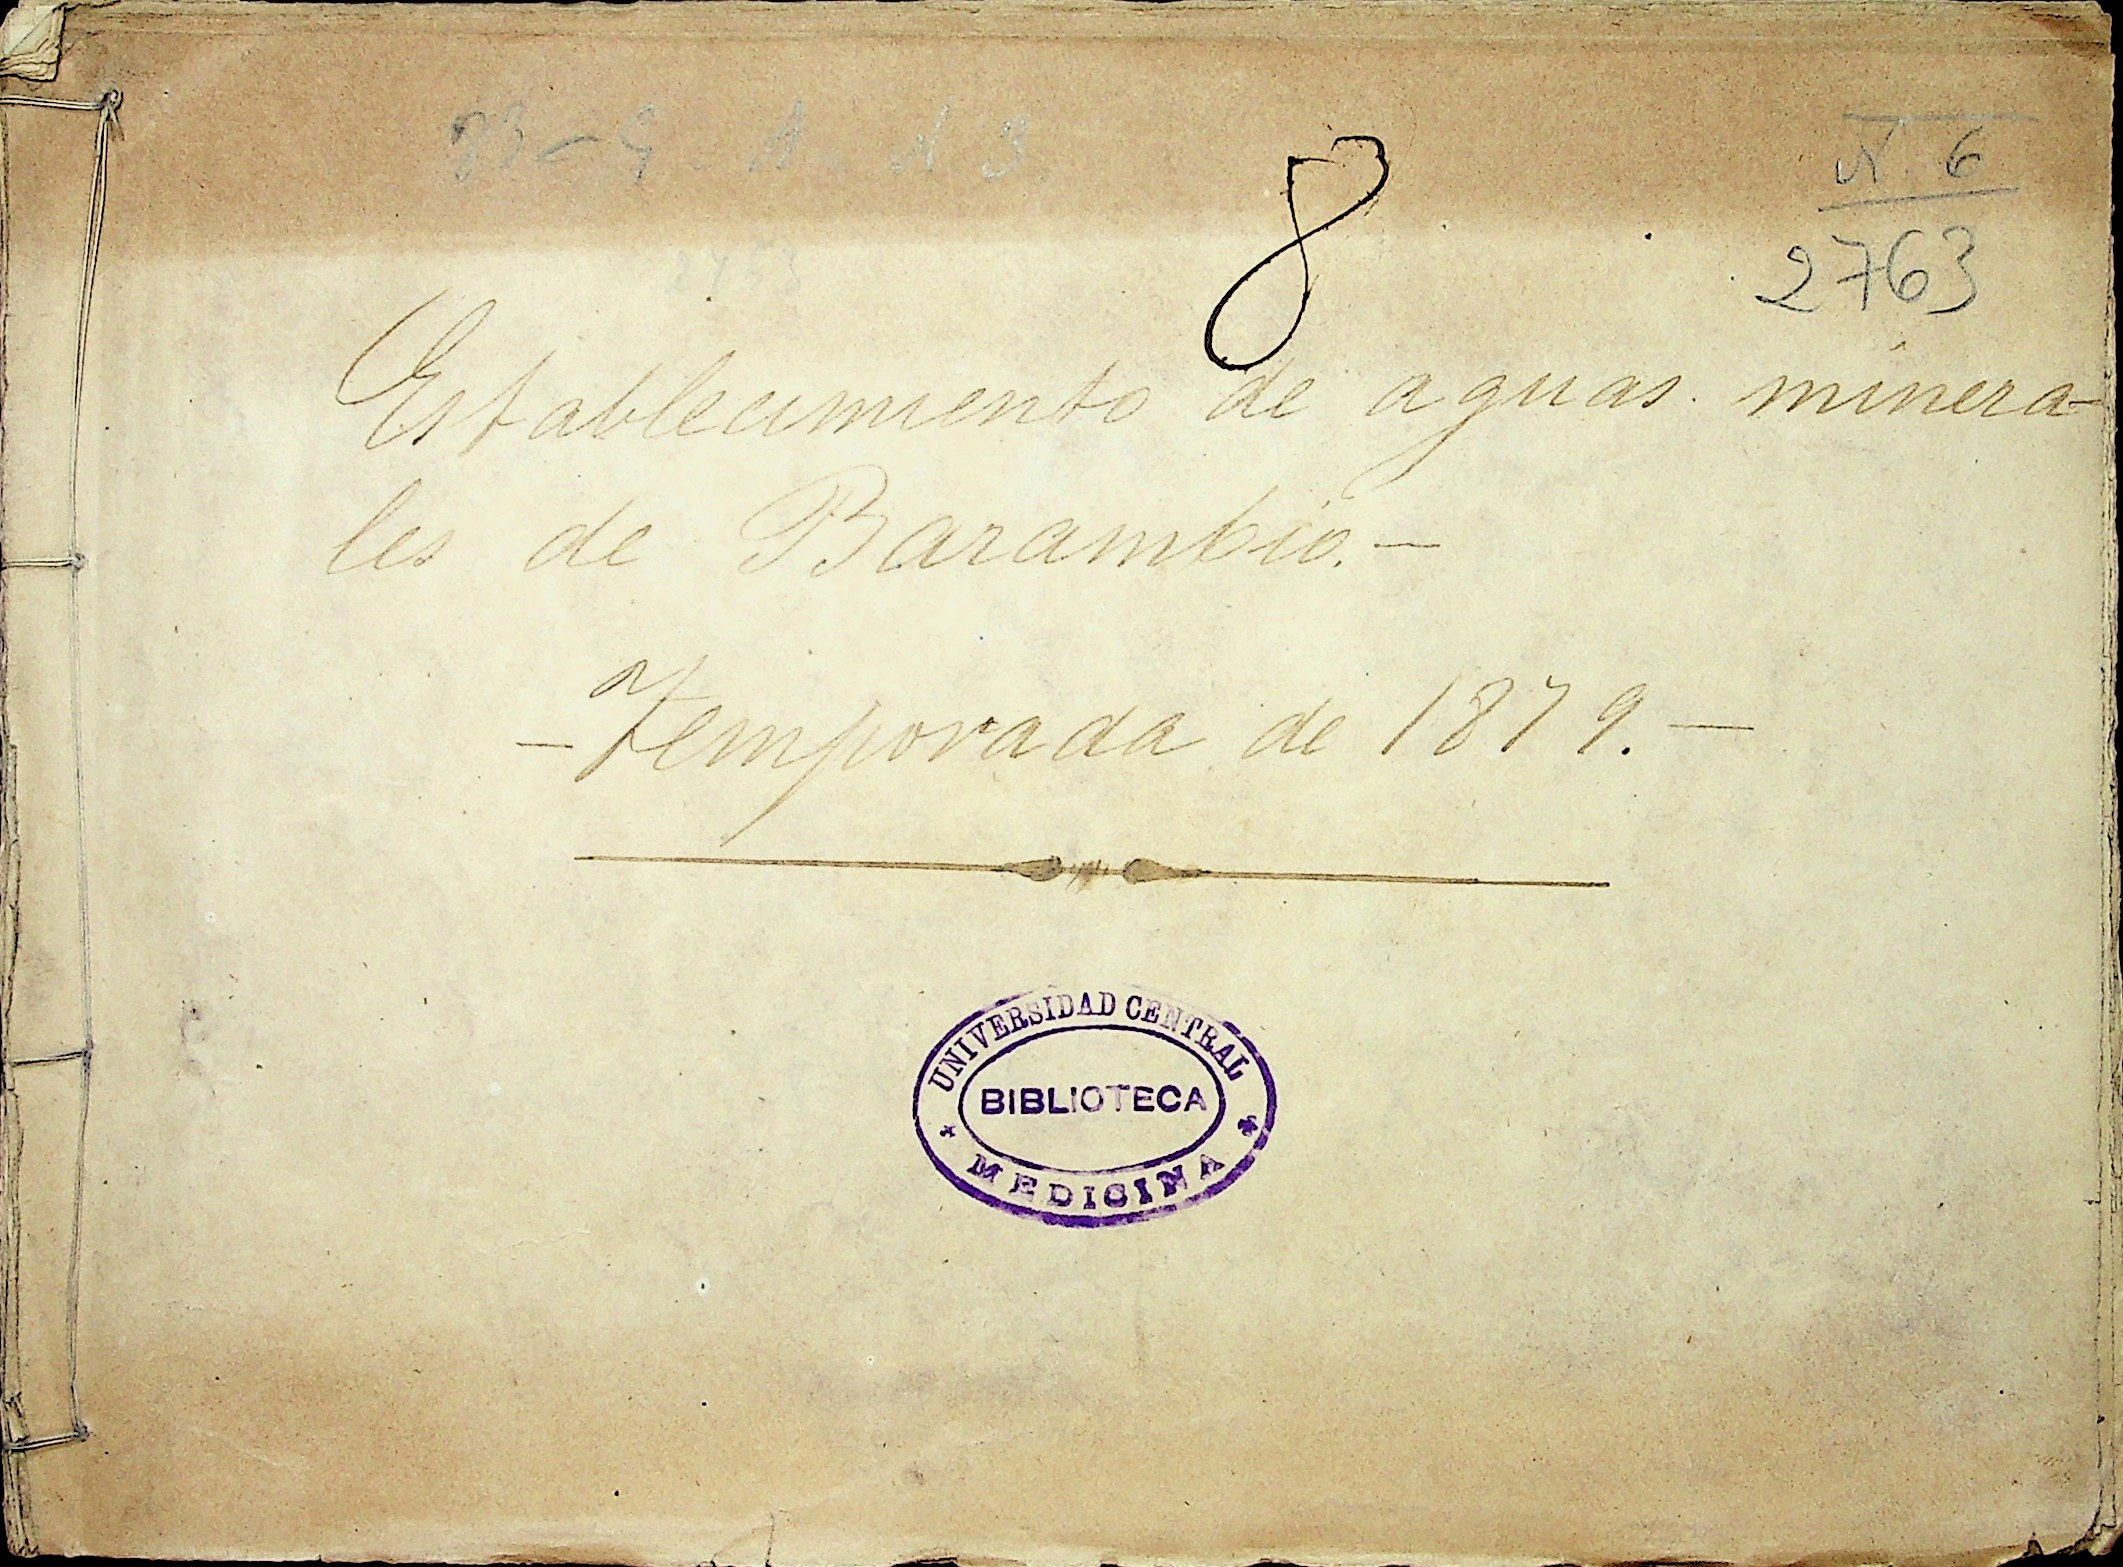 N. 6
8
2763
Establecimiento de aguas minera-
les de Barambio.—
— Temporada de 1879. —
UNIVERSIDAD CENTRAL
BIBLIOTECA
MEDICINA